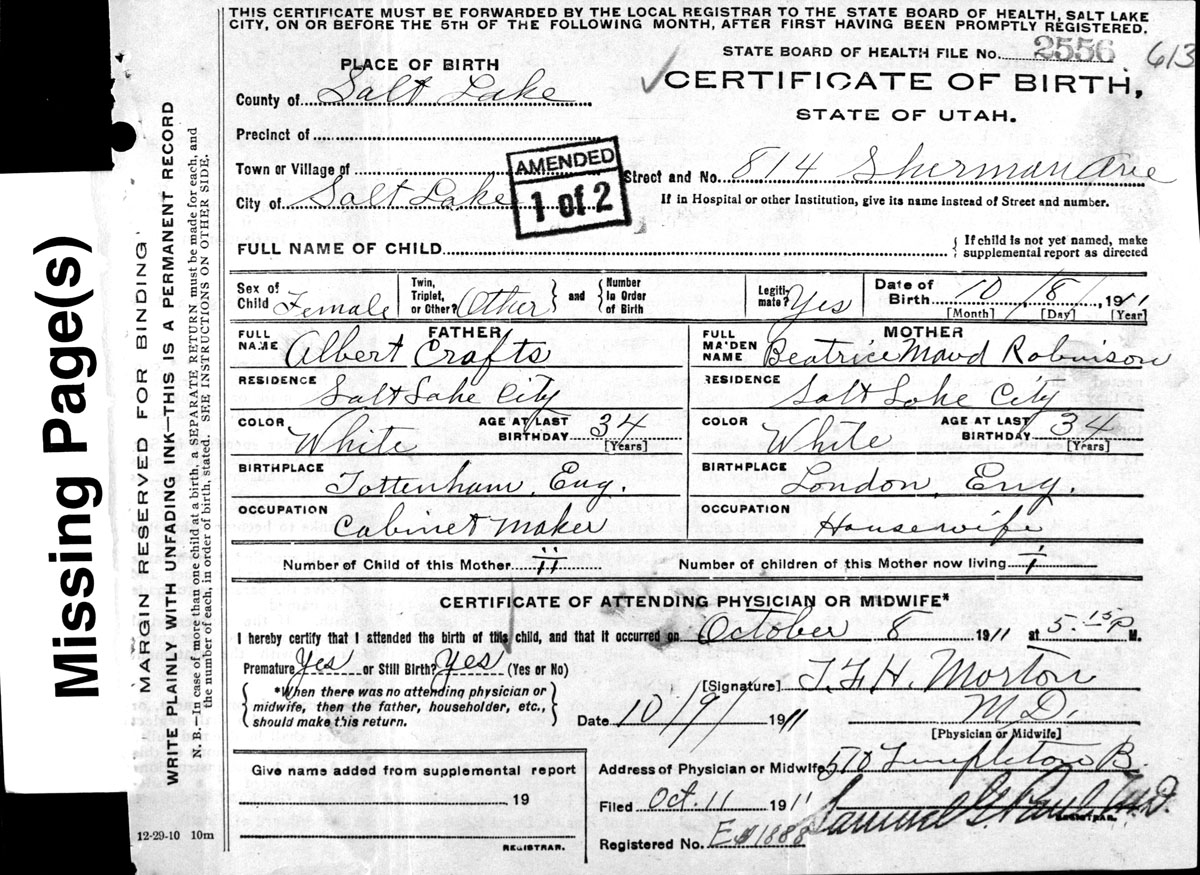 THIS CERTIFICATE MUST BE FORWARDED BY THE LOCAL REGISTRAR TO THE STATE BOARD OF HEALTH, SALT LAKE
CITY, ON OR BEFORE THE 5TH OF THE FOLLOWING MONTH, AFTER FIRST HAVING BEEN PROMPTLY REGISTERED.
STATE BOARD OF HEALTH FILE No. 2556 613
PLACE OF BIRTH
CERTIFICATE OF BIRTH,
STATE OF UTAH.
County of Salt Lake
Precinct of
Town or Village of
AMENDED
1 of 2
Street and No. 814 Sherman Ave
City of Salt Lake
If in Hospital or other Institution, give its name instead of Street and number.
FULL NAME OF CHILD
If child is not yet named, make
supplemental report as directed
Sex of Child Female
Twin, Triplet, or Other? Other and Number in Order of Birth
Legitimate? Yes
Date of Birth 10 / 8 / , 1911
[Month] [Day] [Year]
FATHER
FULL NAME Albert Crafts
MOTHER
FULL MAIDEN NAME Beatrice Maud Robinison
RESIDENCE Salt Lake City
RESIDENCE Salt Lake City
COLOR White AGE AT LAST BIRTHDAY 34 [Years]
COLOR White AGE AT LAST BIRTHDAY 34 [Years]
BIRTHPLACE Tottenham, Eng.
BIRTHPLACE London, Eng.
OCCUPATION Cabinet Maker
OCCUPATION Housewife
Number of Child of this Mother 11 Number of children of this Mother now living 7
CERTIFICATE OF ATTENDING PHYSICIAN OR MIDWIFE*
I hereby certify that I attended the birth of this child, and that it occurred on October 8 1911 at 5.15 P M.
Premature Yes or Still Birth? Yes (Yes or No)
*When there was no attending physician or
midwife, then the father, householder, etc.,
should make this return.
[Signature] T. F. H. Morton
M.D.
[Physician or Midwife]
Date 10/9/ 1911
Address of Physician or Midwife 510 Templeton B.
Give name added from supplemental report
19
REGISTRAR.
Filed Oct. 11 1911 Samuel G. Paul M.D.
REGISTRAR.
Registered No. E 1888
12-29-10 10m
Missing Page(s)
MARGIN RESERVED FOR BINDING
WRITE PLAINLY WITH UNFADING INK—THIS IS A PERMANENT RECORD
N. B.—In case of more than one child at a birth, a SEPARATE RETURN must be made for each, and
the number of each, in order of birth, stated. SEE INSTRUCTIONS ON OTHER SIDE.